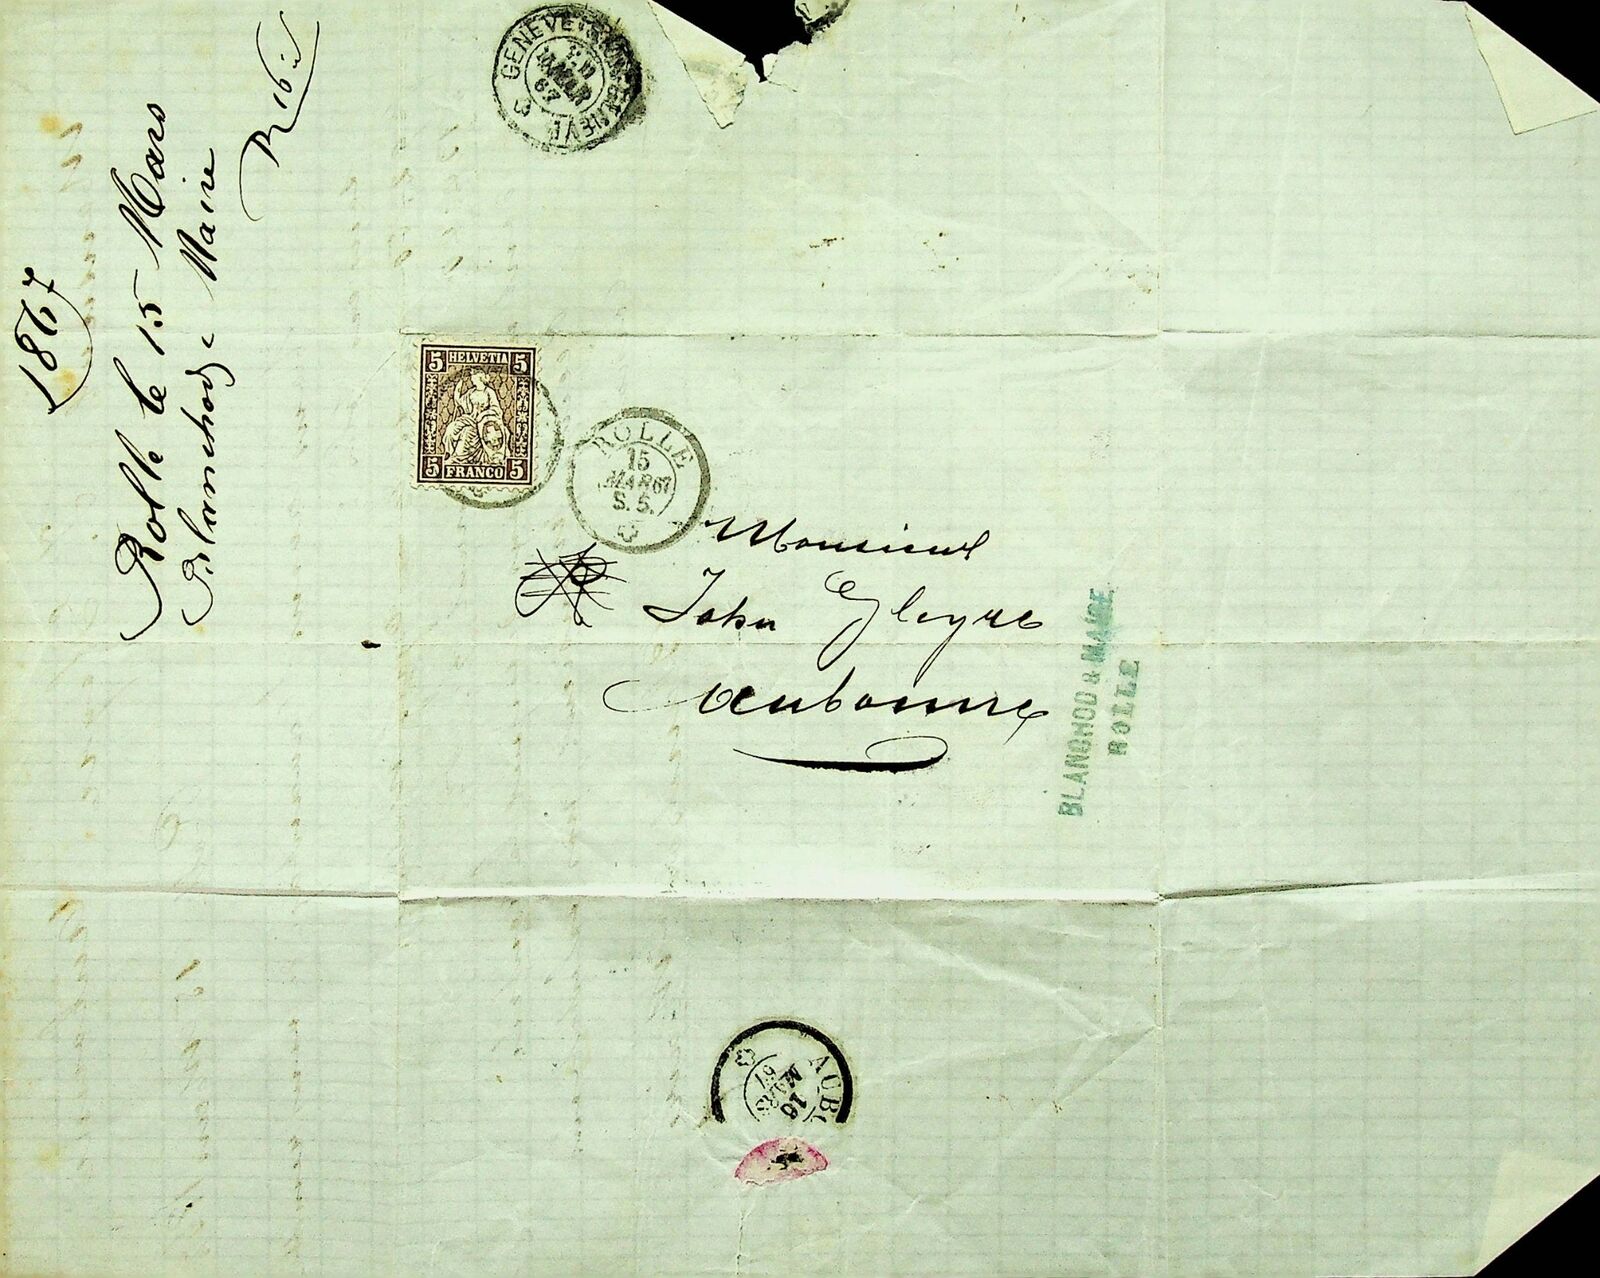 1867
Rolle le 15 Mars
Blanchod & Maire
R 16 d
GENEVE
MAR
67
5 HELVETIA 5
5 FRANCO 5
ROLLE
15
MAR 67
S. 5.
Monsieur
John Gleyre
Aubonne
BLANCHOD & MAIRE
ROLLE
AUBO
16
MARS
67